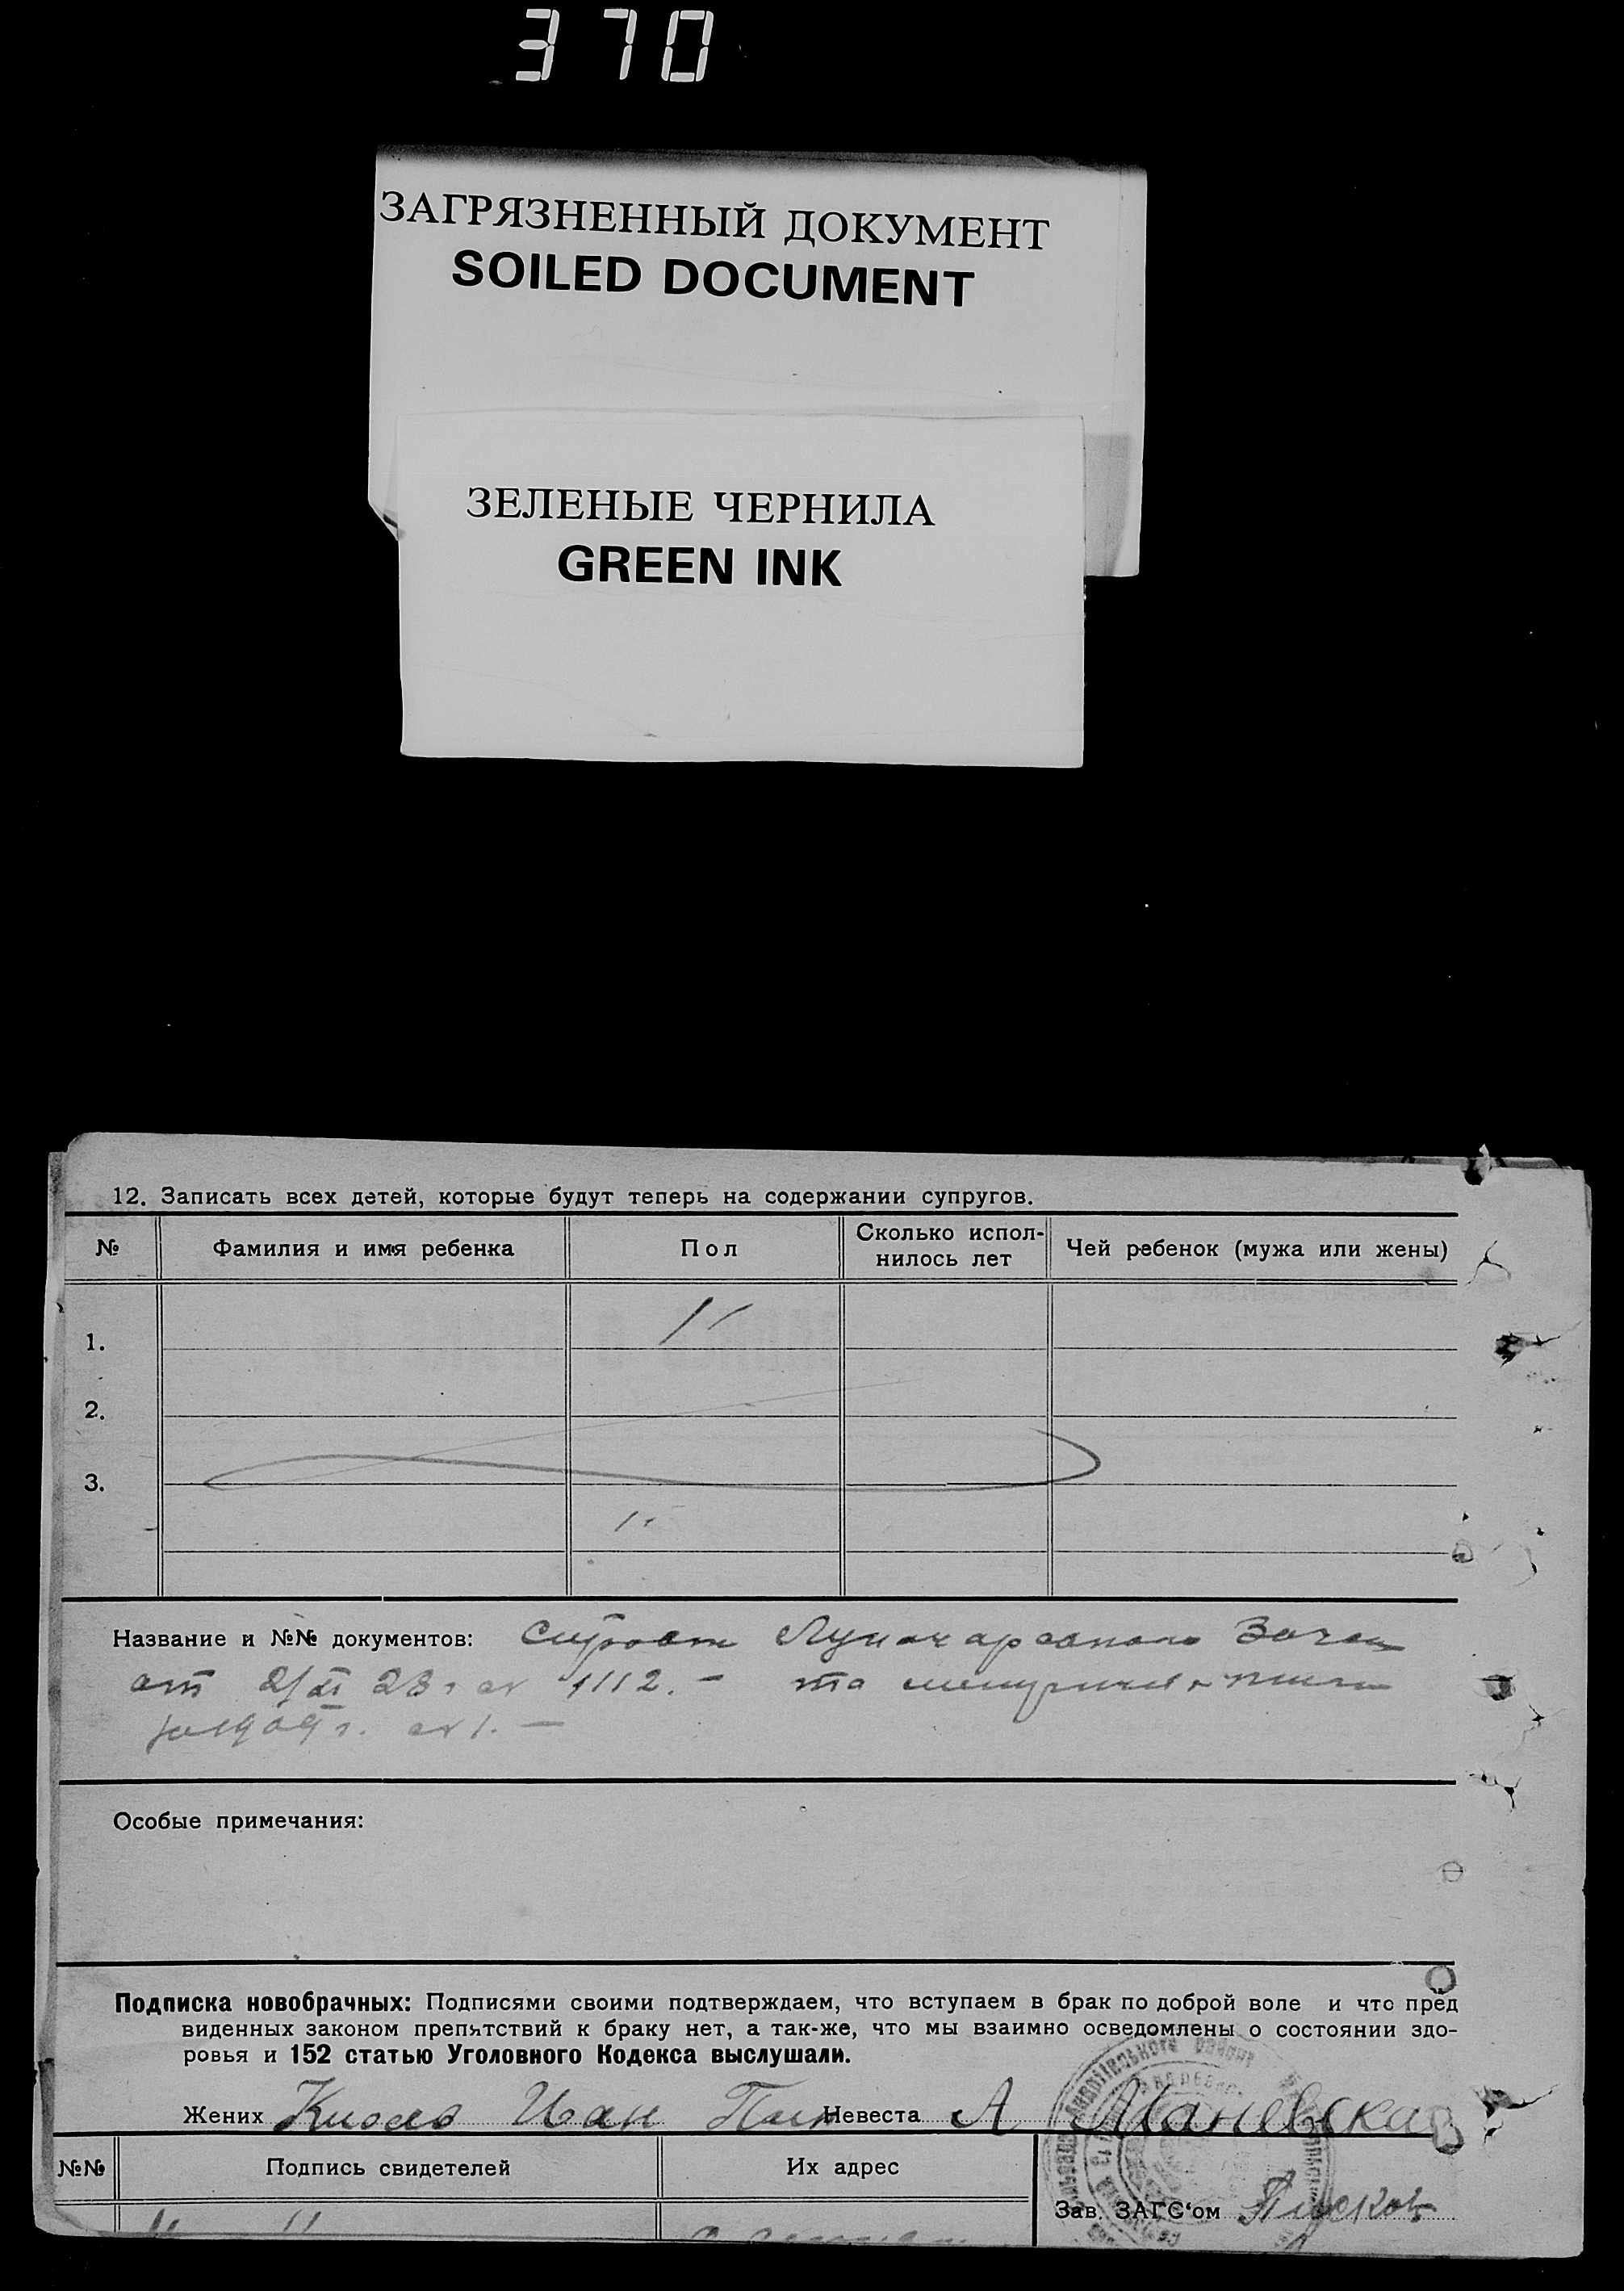 370
ЗАГРЯЗНЕННЫЙ ДОКУМЕНТ
SOILED DOCUMENT
ЗЕЛЕНЫЕ ЧЕРНИЛА
GREEN INK
12. Записать всех детей, которые будут теперь на содержании супругов.
№ Фамилия и имя ребенка Пол Сколько испол-нилось лет Чей ребенок (мужа или жены)
1.
2.
3.
Название и №№ документов:
от 1112. – та
Особые примечания:
Подписка новобрачных: Подписями своими подтверждаем, что вступаем в брак по доброй воле и что пред
виденных законом препятствий к браку нет, а так-же, что мы взаимно осведомлены о состоянии здо-
ровья и 152 статью Уголовного Кодекса выслушали.
Жених Иван Невеста А Маневска
№№ Подпись свидетелей Их адрес
Зав. ЗАГС'ом